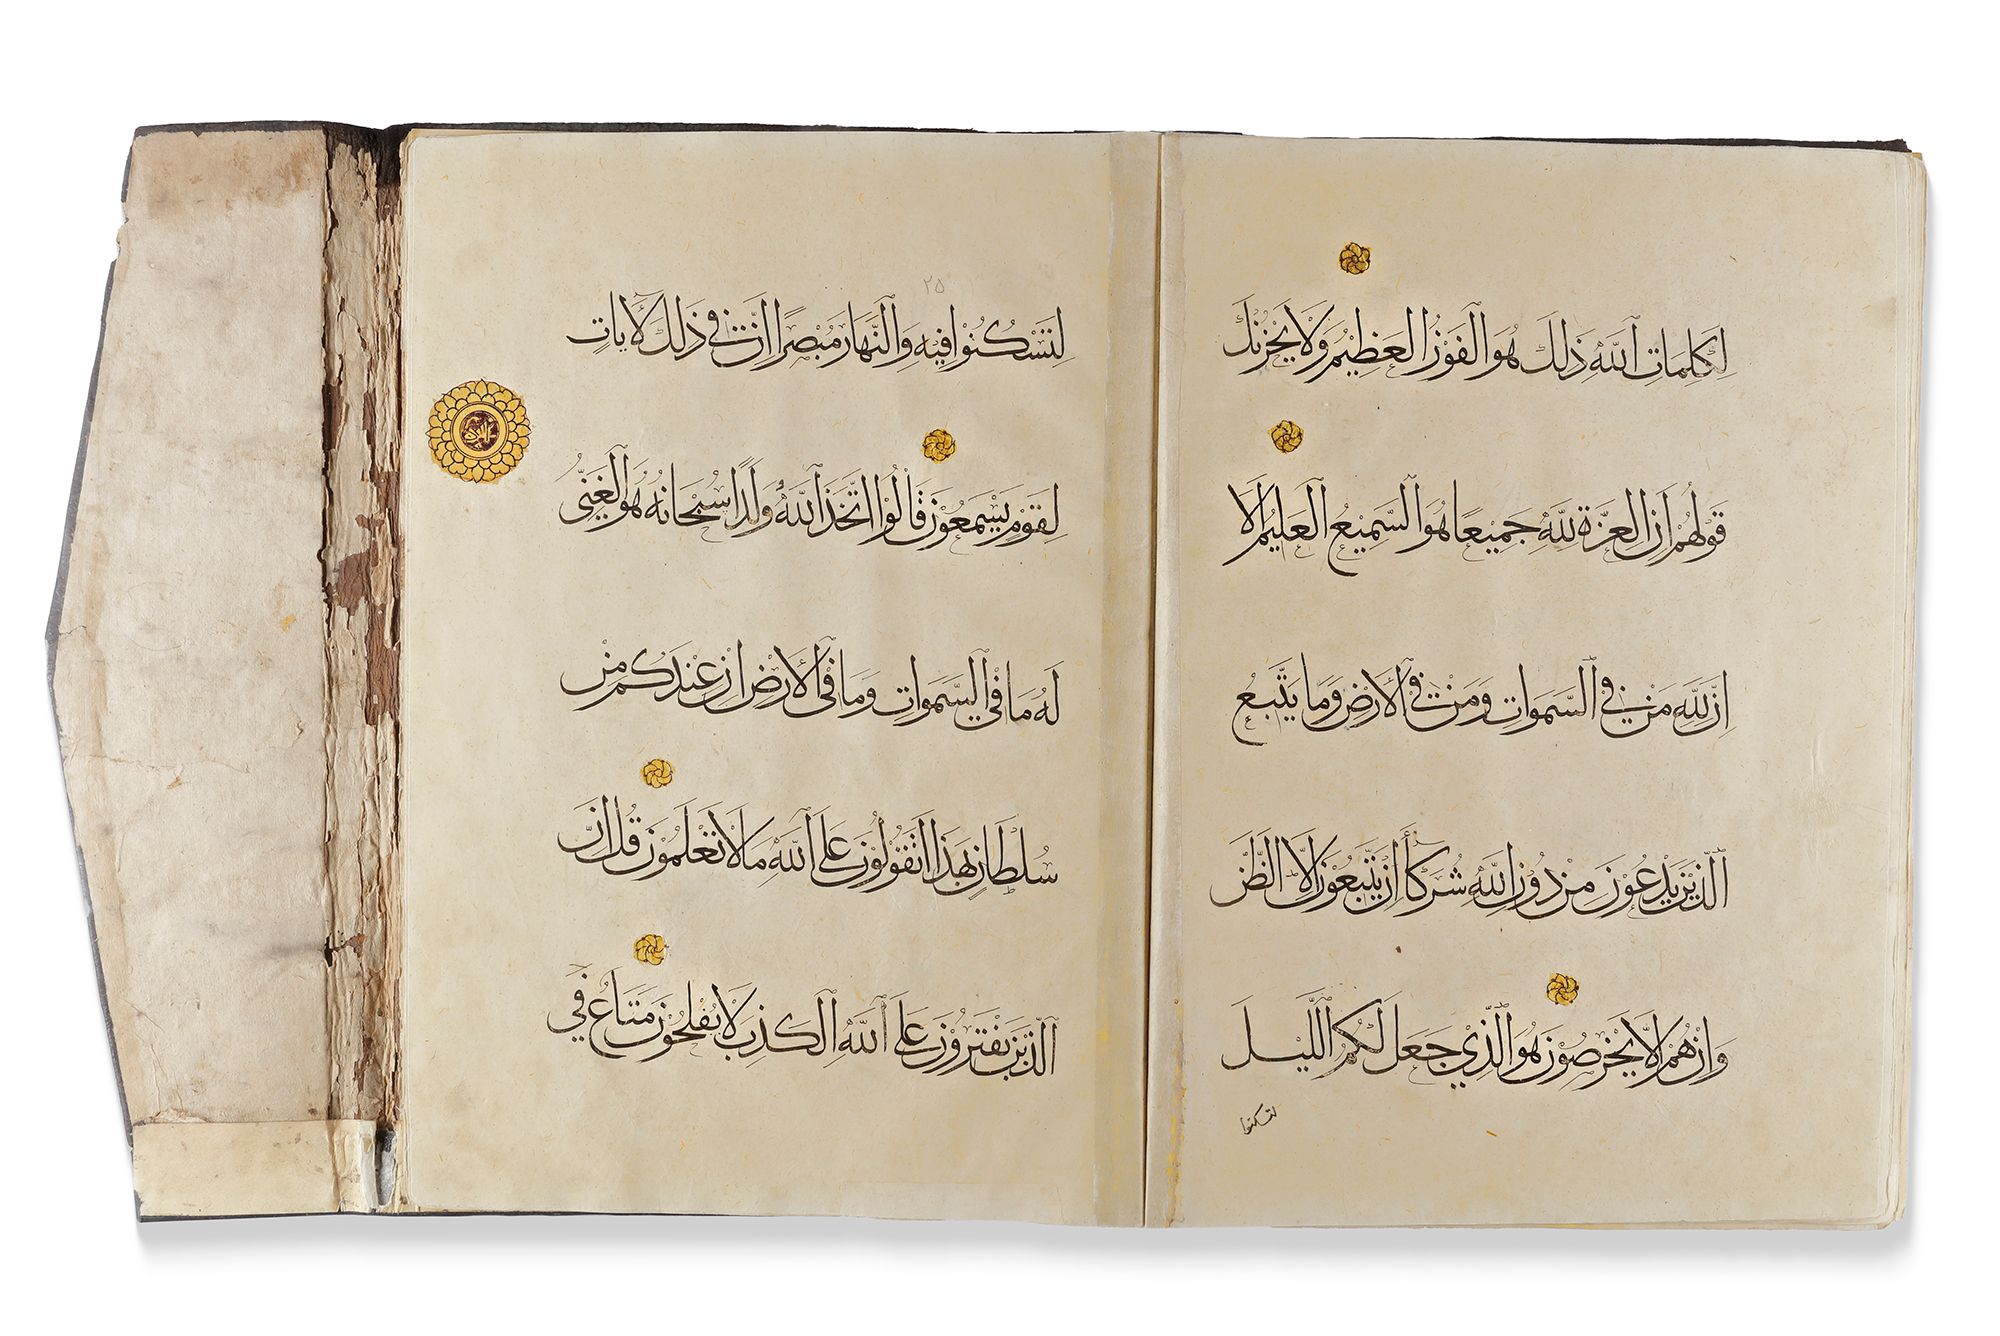 لِكَلِمَاتِ ٱللّٰهِ ذَلِكَ هُوَ ٱلْفَوْزُ ٱلْعَظِيْمُ وَلَا يَحْزُنْكَ
قَوْلُهُمْ اَنَّ الْعِزَّةَ لِلّٰهِ جَمِيْعًا هُوَ ٱلسَّمِيْعُ ٱلْعَلِيْمُ اَلَا
اِنَّ لِلّٰهِ مَنْ فِي ٱلسَّمَوَاتِ وَمَنْ فِي ٱلْأَرْضِ وَمَا يَتَّبِعُ
ٱلَّذِيْنَ يَدْعُوْنَ مِنْ دُوْنِ ٱللّٰهِ شُرَكَأَ اِنْ يَتَّبِعُوْنَ اِلَّا ٱلظَّنَّ
وَاِنْ هُمْ اِلَّا يَخْرُصُوْنَ هُوَ ٱلَّذِيْ جَعَلَ لَكُمُ ٱللَّيْلَ
لتسكنوا
٢٥
لِتَسْكُنُوْا فِيْهِ وَٱلنَّهَارَ مُبْصِرًا اِنَّ فِي ذَلِكَ لَأَيَاتٍ
لِقَوْمٍ يَسْمَعُوْنَ قَالُوْا اتَّخَذَ ٱللّٰهُ وَلَدًا سُبْحَانَهُ هُوَ ٱلْغَنِيُّ
لَهُ مَا فِي ٱلسَّمَوَاتِ وَمَا فِي ٱلْأَرْضِ اِنْ عِنْدَكُمْ مِنْ
سُلْطَانٍ بِهَذَا اَتَقُوْلُوْنَ عَلَى ٱللّٰهِ مَا لَا تَعْلَمُوْنَ قُلْ اِنَّ
ٱلَّذِيْنَ يَفْتَرُوْنَ عَلَى ٱللّٰهِ ٱلْكَذِبَ لَا يُفْلِحُوْنَ مَتَاعٌ فِي